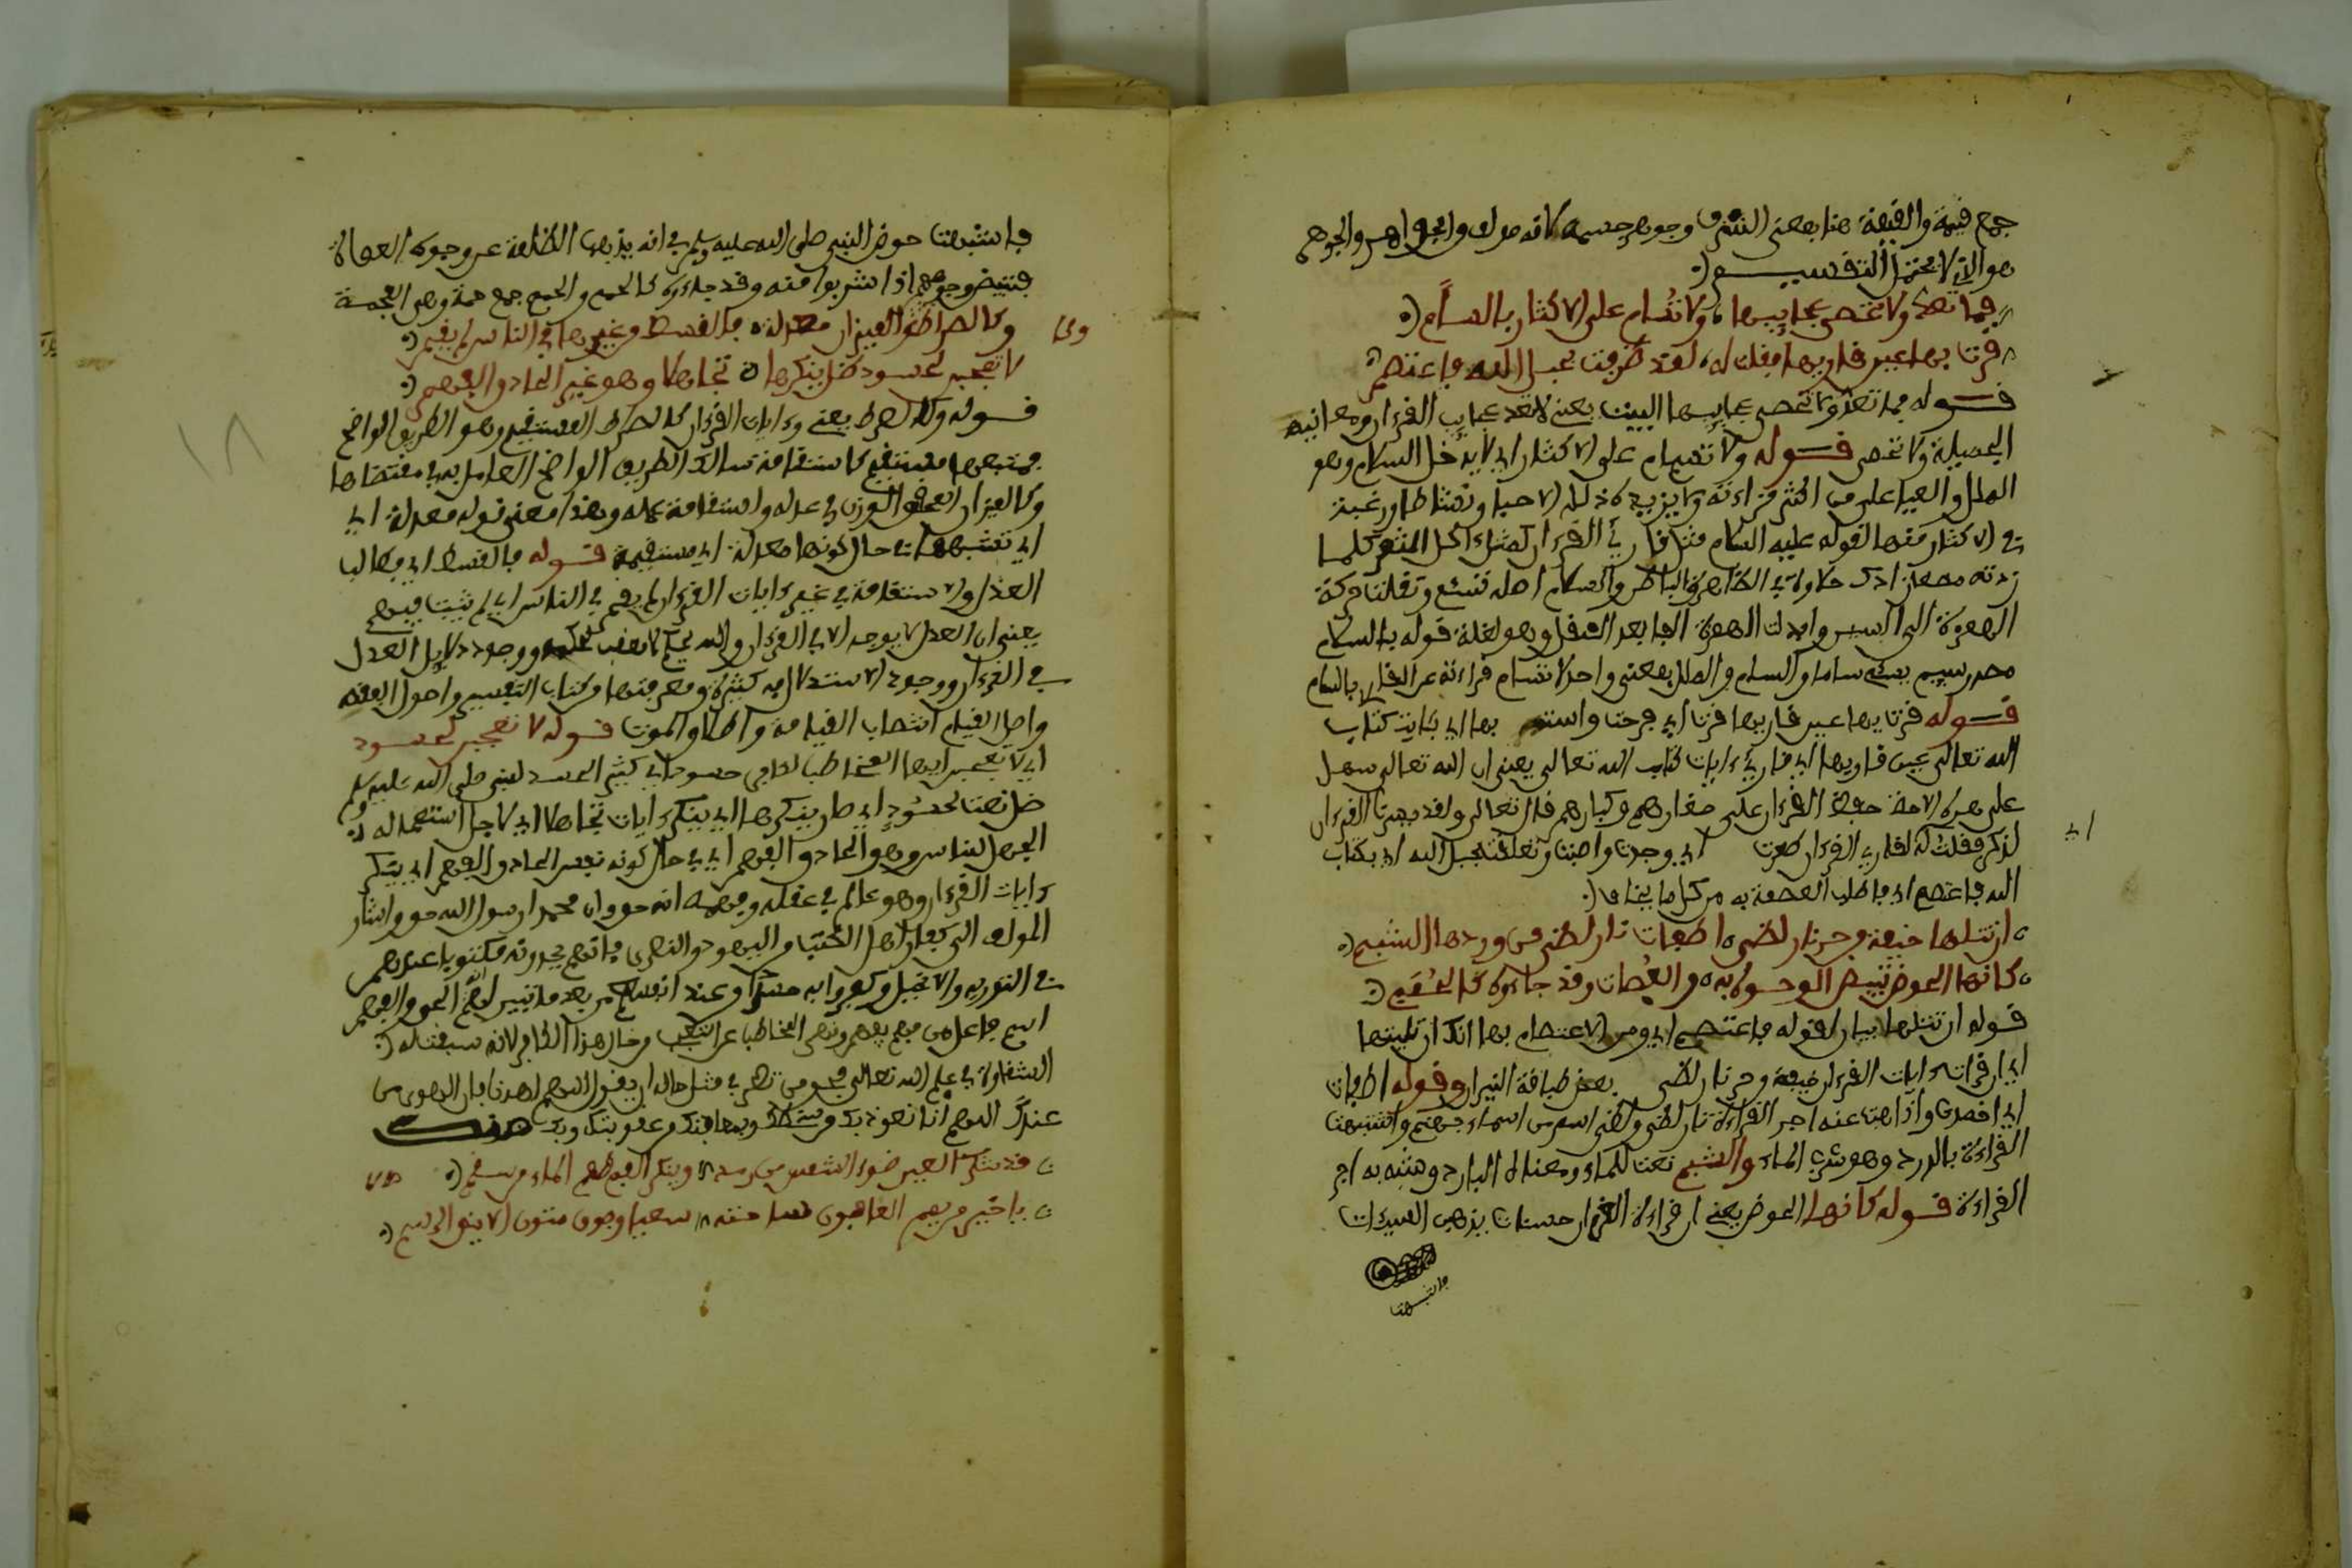 جمع قيمة والقيمة هنا بمعنى الشرف وجوهر جسمه لانه مولف والجواهر والجوهر
هو الذي لا يحتمل التقسيم
فما تعد ولا تحصى عجايبها ولا تسام على الاكثار بالسام
قرت بها عين قاريها فقلت له لقد ظفرت بحبل الله فاعتصم
قوله فما تعد ولا تحصى عجايبها البيت يعني لا تعد عجايب القرءان ومعانيه
الجميلة ولا تحصى قوله ولا تسام على الاكثار اي لا يدخل السام وهو
الملل والعيا على من اكثر قراءته ولا يزيده ذلك الا حبا ونشاطا ورغبة
في الاكثار منها لقوله عليه السلام مثل قارئ القرءان كمثل اكل الثمر كلما
زدته مضغا زادك حلاوة في الظاهر والباطن والسام اصله تسئم ونقلت حركة
الهمزة الى السين وابدلت الهمزة الفا بعد النقل وهو لغة قوله بالسام
مصدر سيم يسئم ساما والسام والملل بمعنى واحد لا تسام قراءته عن القارئ بالسام
قوله قرت بها عين قاريها قرت اي فرحت بها اي بايت كتاب
الله تعالى عين قاريها اي قارئ ءايات كتاب الله تعالى يعني ان الله تعالى سهل
على هذه الامة حفظ القرءان على صغارهم وكبارهم قال تعالى ولقد يسرنا القرءان
للذكر فقلت له لقارئ القرءان ظفرت اي وجدت واصبت وتعلقت بحبل الله اي بكتاب
اي
الله فاعتصم اي فاطلب العصمة به من كل ما يخاف
ان تتلها خيفة من حر نار لظى اطفات نار لظى من وردها الشبم
كانها الحوض تبيض الوجوه به من العصات وقد جاءوه كالحمم
قوله ان تتلها بيان لقوله فاعتصم اي ومن الاعتصام بها انك ان تليتها
اي ان قرات ءايات القرءان خيفة من حر نار لظى بعض طباقة النيران وقوله اطفات
اي اخمدت واذهبت عنه اجر القراءة نار لظى ولظى اسم من اسماء جهنم واشتبهت
القراءة بالورد وهو شرب الماء والشبم نعت للماء ومعناه البارد وشبه به اجر
القراءة قوله كانها الحوض يعني ان قراءة القرءان حسنات يذهبن السيئات
فاشبهت
فاشبهت حوض النبي صلى الله عليه وسلم في انه يذهب الظلمة عن وجوه العصاة
فتبيض وجوههم اذا شربوا منه وقد جاءوه كالحمم والحمم جمع حمة وهي الفحمة
وكالصراط وكالميزان معدلة فالقسط من غيرها في الناس لم يقم
وكا
لا تعجبن لحسود ظل ينكرها تجاهلا وهو عين الحاذق الفهم
قوله وكالصراط يعني وءايات القرءان كالصراط المستقيم وهو الطريق الواضح
فمتبعها مستقيم كاستقامة سالك الطريق الواضح العامل به في مقتضاها
وكالميزان المحقق الوزن في عدله واستقامة عمله وهذا معنى قوله معدلة اي
اي تشبهها في حال كونها معدلة اي مستقيمة قوله فالقسط اي فطالب
العدل والاستقامة في غير ءايات القرءان لم يقم في الناس اي لم يثبت فيهم
يعني ان العدل لا يوجد الا في القرءان والله يحكم لا معقب لحكمه ووجوده دلايل العدل
في القرءان ووجود الاستدلال به كثيرة ومعرفتها من كتاب التفسير واصول الفقه
واصل القيام انتصاب القيامة والموت قوله لا تعجبن لحسود
اي لا تعجبن ايها المخاطب لحسود اي كثير الحسد لنبي صلى الله عليه وسلم
ظل نعت لحسود اي ظل ينكرها اي ينكر ءايات تجاهلا اي لاجل استعماله
الجهل للناس وهو الحاذق الفهم اي في حال كونه نفس الحاذق الفهم اي ينكر
ءايات القرءان وهو عالم في عقله وفهمه انه حق وان محمدا رسول الله حق واشار
المولف الى كفار اهل الكتب من اليهود والنصرى فانهم يجدونه مكتوبا عندهم
في التورية والانجيل وكفروا به حسدا من عند انفسهم من بعد ما تبين لهم الحق والفهم
اسم فاعل من فهم يفهم ونهى المخاطب عن التعجب من حال هذا الكافر لانه سبقت له
الشقاوة في علم الله تعالى من حاله ان يقول اللهم اهدنا بان الهدى من
عندك اللهم انا نعوذ بك من سخطك وبمعافاتك من عقوبتك وبك منك
قد تنكر العين ضوء الشمس من رمد وينكر الفم طعم الماء من سقم
يا خير من يمم العافون ساحته سعيا وفوق متون الاينق الرسم